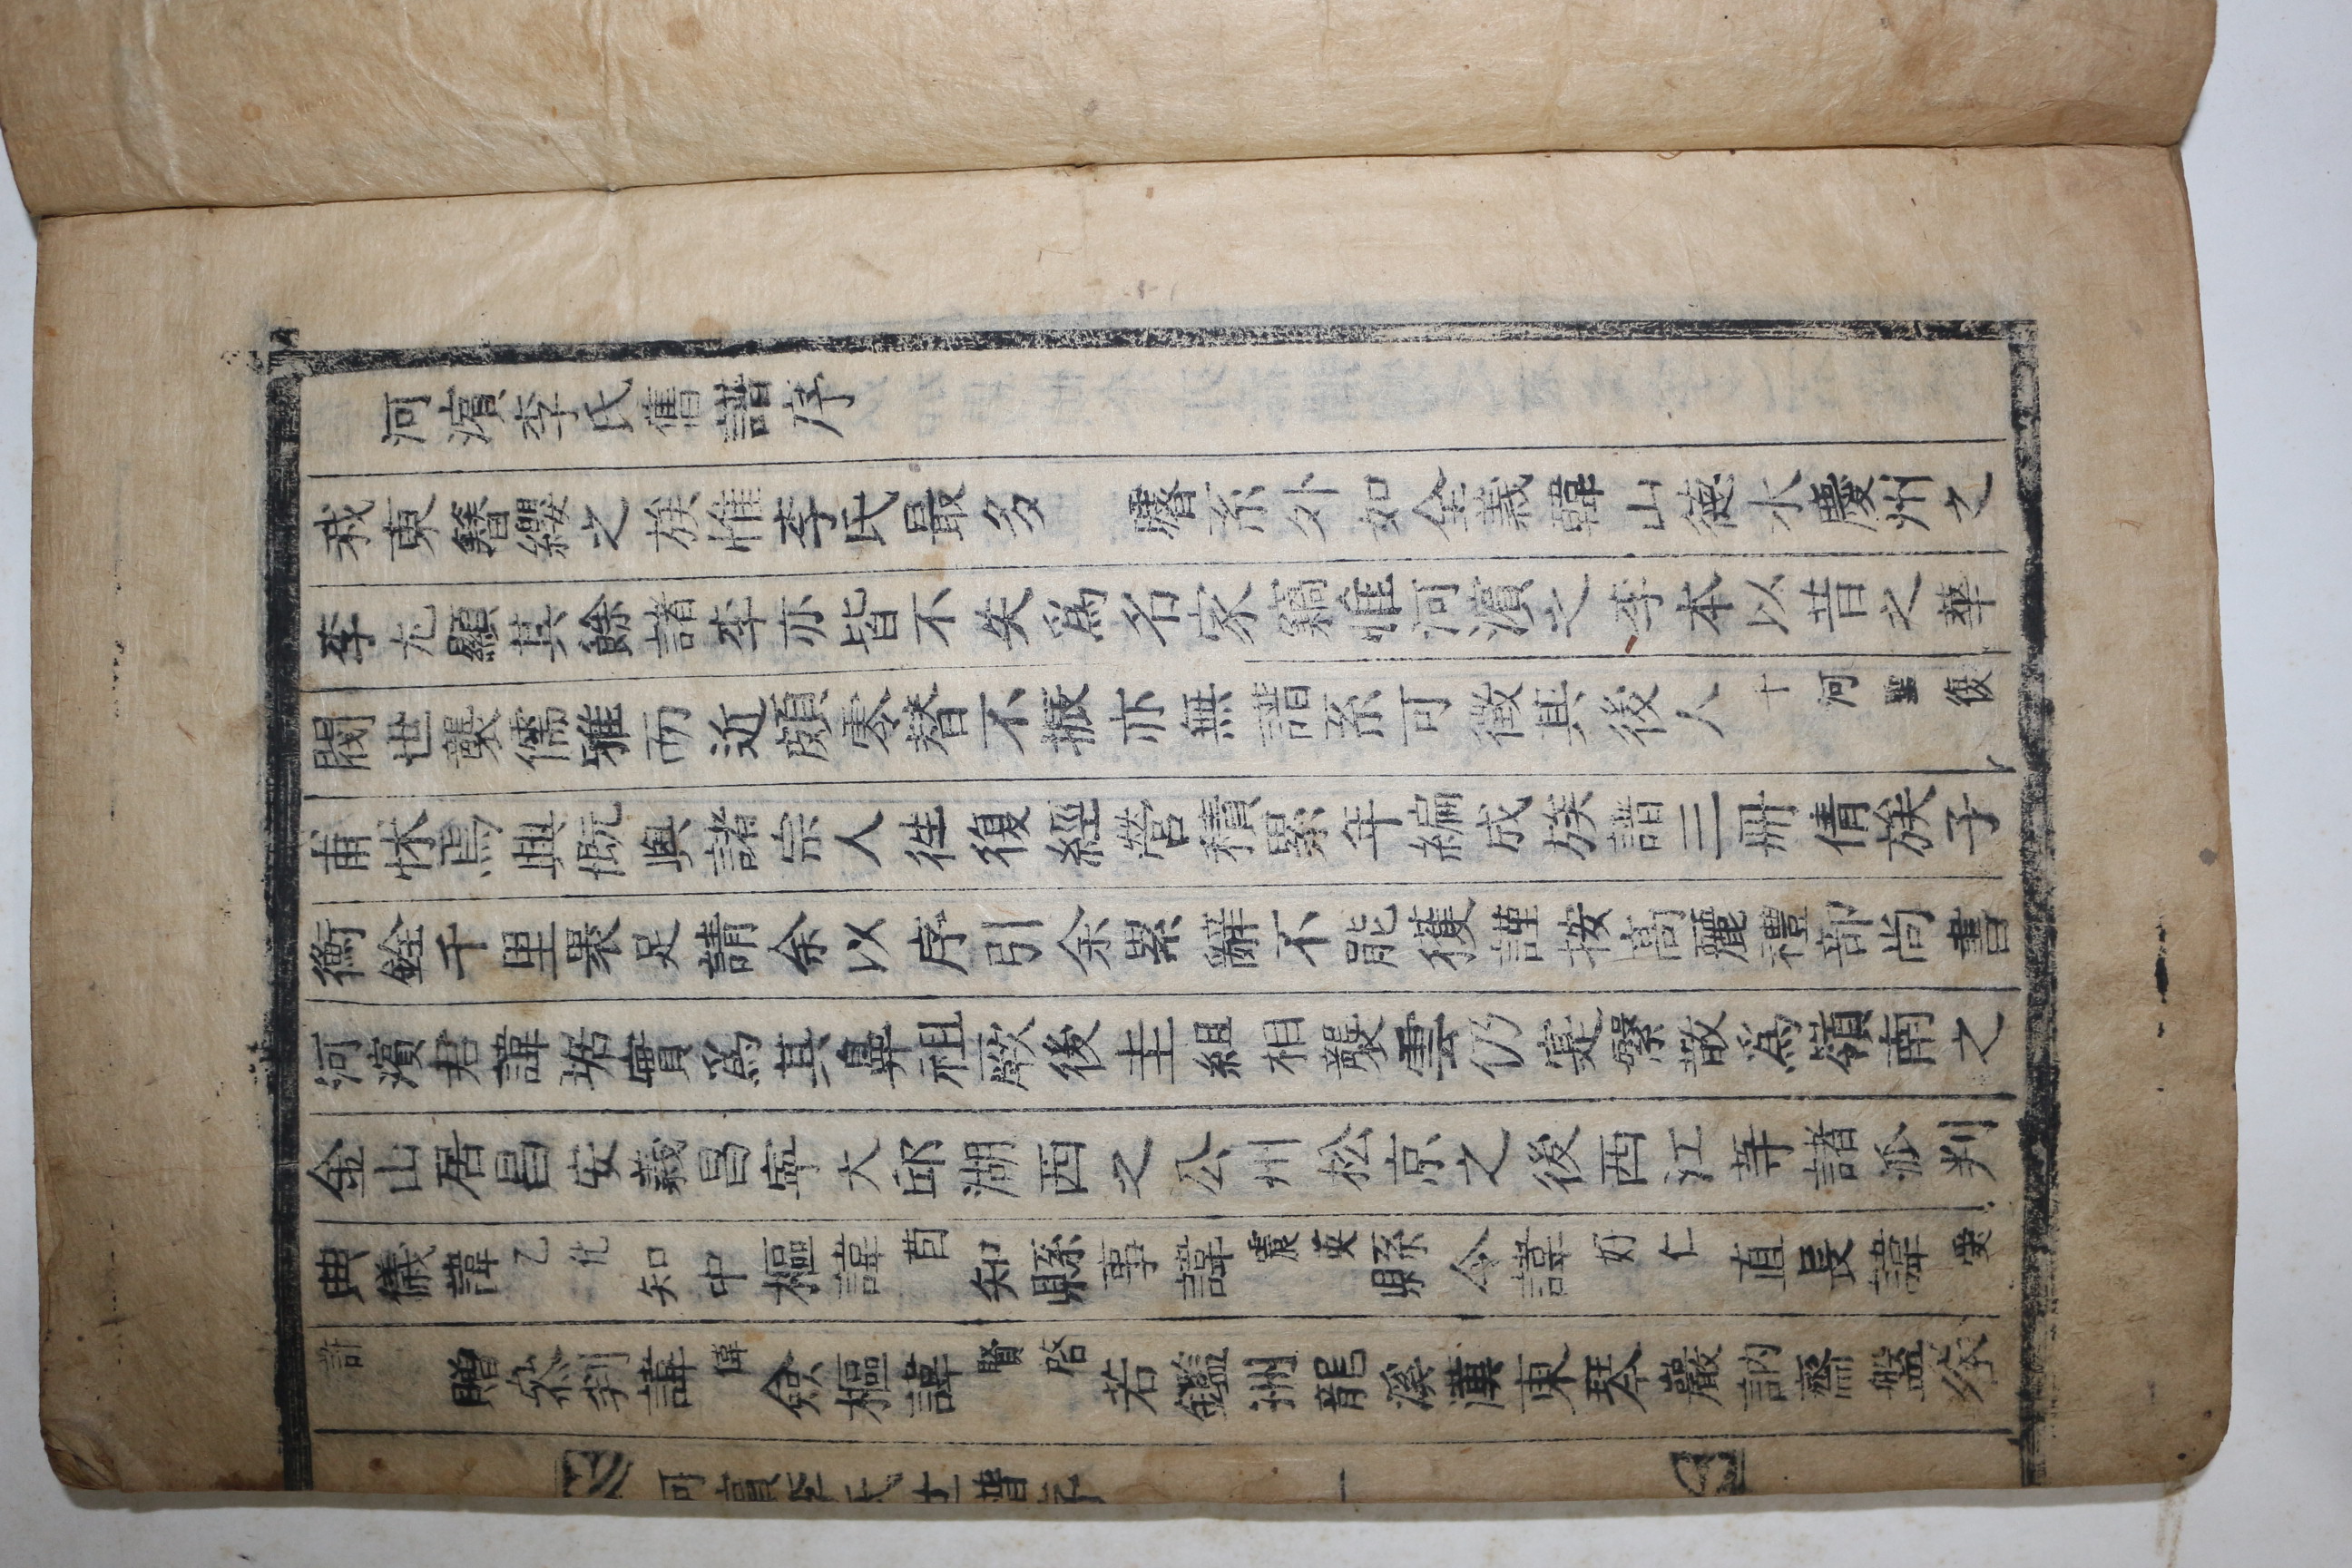 河濱李氏舊譜序
我東簪纓之族惟李氏最多 璿系外如全義韓山德水慶州之
李尤顯其餘諸李亦皆不失爲名家竊惟河濱之李本以昔之華
閥世襲儒雅而近頗零替不振亦無譜系可徵其後人 河聖復
甫怵焉興慨與諸宗人徃復經營積累年編成族譜三冊倩族子
衡銓千里褁足請余以序引余累辭不能獲謹按高麗禮部尚書
河濱君諱琚實爲其鼻祖厥後圭組相襲雲仍寔繁散爲嶺南之
金山居昌安義昌寧大邱湖西之公州松京之後西江等諸派判
典儀諱乙化知中樞諱苩知縣事諱震英縣令諱好仁直長諱愛
許 贈叅判諱偉僉樞諱賢啓若鑑洲龍溪漢東琴巖訥齋盤
河濱李氏世譜序 一